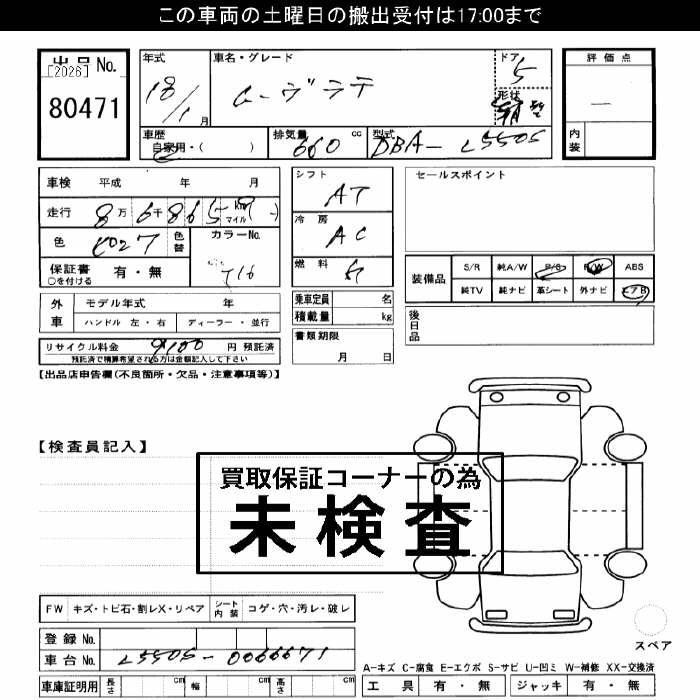 この車両の土曜日の搬出受付は17:00まで
出品No.
[2026]
80471
年式
18/1月
車名・グレード
ムーヴラテ
ドア
5
形状
評価点
内装
車歴
自家用・( )
排気量
660 cc
型式
DBA-L550S
車検 平成 年 月
走行 8万6千865 km マイル
色
色替
カラーNo.
T16
保証書 有・無
○を付ける
シフト
AT
冷房
AC
燃料
ガ
セールスポイント
装備品
S/R 純A/W P/S P/W ABS
純TV 純ナビ 革シート 外ナビ エアB
外車
モデル年式 年
ハンドル 左・右 ディーラー・並行
乗車定員 名
積載量 kg
書類期限
月 日
後日品
リサイクル料金 9100 円 預託済
預託済で精算希望される方は金額記入して下さい
【出品店申告欄(不良箇所・欠品・注意事項等)】
【検査員記入】
買取保証コーナーの為
未検査
FW キズ・トビ石・割レX・リペア シート内装 コゲ・穴・汚レ・破レ
登録No.
車台No. L550S-0066671
車庫証明用 長さ cm 幅 cm 高さ cm
スペア
A-キズ C-腐食 E-エクボ S-サビ U-凹ミ W-補修 XX-交換済
工具 有・無 ジャッキ 有・無